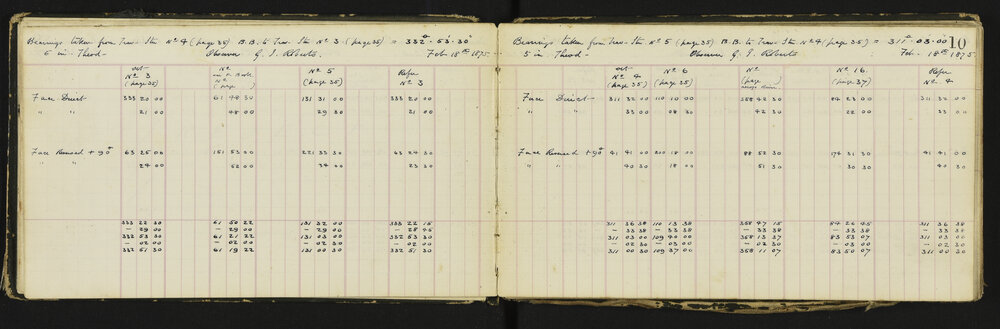 Bearings taken from Trav. Stn No 4 (page 35) B.B. to Trav. Stn No 3 (page 35) = 332° 53' 30"
5 in. Theod. Observer G. J. Roberts. Feb 18th 1875.
No 3 (page 35) No (page ) No 5 (page 35) Refer No 3
Face Direct 333 20 00 61 48 30 131 31 00 333 20 00
" " 21 00 48 00 29 30 21 00
Face Reversed + 90° 63 25 00 151 53 00 221 33 30 63 24 30
" " 24 00 52 00 34 00 23 30
333 22 30 61 50 22 131 32 00 333 22 15
— 29 00 — 29 00 — 29 00 — 28 45
332 53 30 61 21 22 131 03 00 332 53 30
— 02 00 — 02 00 — 02 30 — 02 00
332 51 30 61 19 22 131 00 30 332 51 30
10
Bearings taken from Trav. Stn No 5 (page 35) B.B. to Trav. Stn No 4 (page 35) = 311° 03' 00"
5 in. Theod. Observer G. J. Roberts. Feb. 18th 1875
No 4 (page 35) No 6 (page 35) No (page ) across river No 16. (page 37) Refer No 4
Face Direct 311 32 00 110 10 00 358 42 30 84 23 00 311 32 00
" " 33 00 08 30 42 30 22 00 33 00
Face Reversed + 90° 41 41 00 200 18 00 88 52 30 174 31 30 41 41 00
" " 40 30 18 00 51 30 30 30 40 30
311 36 38 110 13 38 358 47 15 84 26 45 311 36 38
— 33 38 — 33 38 — 33 38 — 33 38 — 33 38
311 03 00 109 40 00 358 13 37 83 53 07 311 03 00
— 02 30 — 03 00 — 02 30 — 03 00 — 02 30
311 00 30 109 37 00 358 11 07 83 50 07 311 00 30